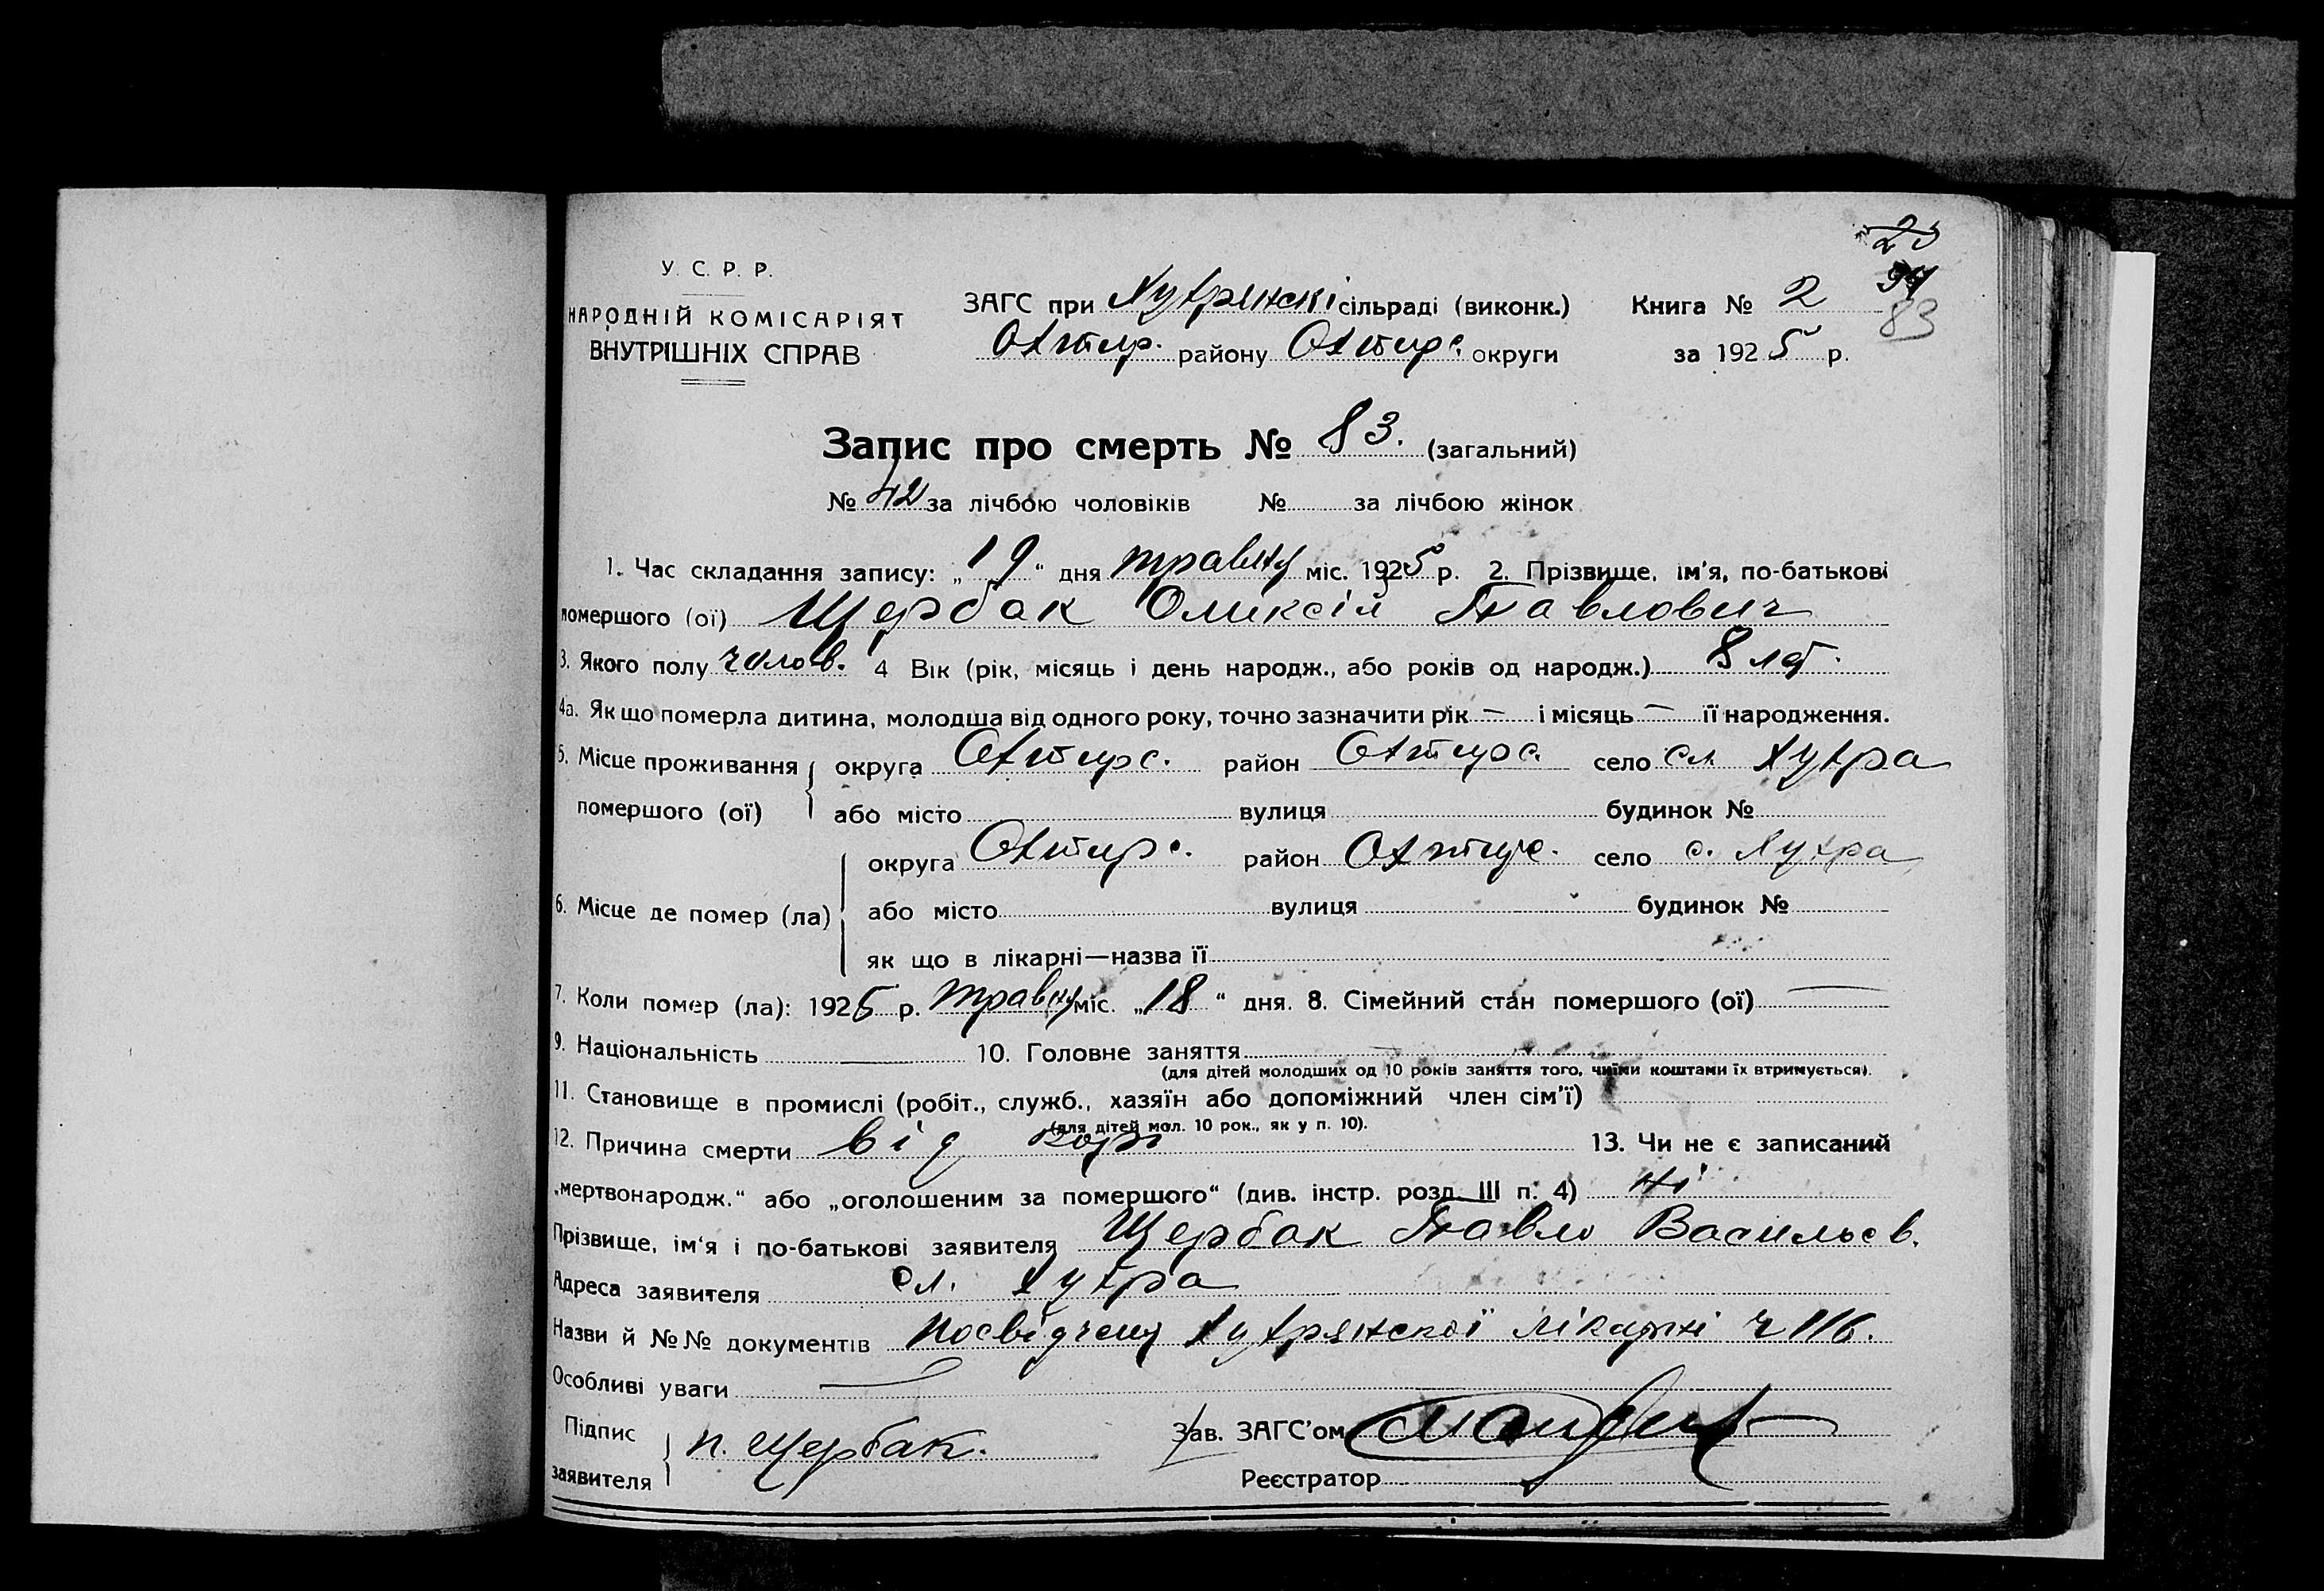 25
У. С. Р. Р.
НАРОДНІЙ КОМІСАРІЯТ
ВНУТРІШНІХ СПРАВ
ЗАГС при Хухрянскі сільраді (виконк.) Книга № 2
83
Охтир. району Охтирс. округи за 1925 р.
Запис про смерть № 83. (загальний)
№ 42 за лічбою чоловіків № за лічбою жінок
1. Час складання запису: „19“ дня травня міс. 1925 р. 2. Прізвище, ім'я, по-батькові
помершого (ої) Щербак Оликсій Павлович
3. Якого полу чолов. 4 Вік (рік, місяць і день народж., або років од народж.) 8 літ.
4а. Як що померла дитина, молодша від одного року, точно зазначити рік — і місяць — її народження.
5. Місце проживання округа Охтирс. район Охтирс. село сл Хухра
помершого (ої) або місто вулиця будинок №
округа Охтирс. район Охтирс. село с. Хухра
6. Місце де помер (ла) або місто вулиця будинок №
як що в лікарні—назва її
7. Коли помер (ла): 1925 р. травня міс. „18“ дня. 8. Сімейний стан помершого (ої) —
9. Національність — 10. Головне заняття
(для дітей молодших од 10 років заняття того, чиїми коштами їх втримується).
11. Становище в промислі (робіт., служб., хазяїн або допоміжний член сім'ї)
(для дітей мол. 10 рок., як у п. 10).
12. Причина смерти від кору 13. Чи не є записаний
„мертвонародж.“ або „оголошеним за помершого“ (див. інстр. розд. III п. 4) ні
Прізвище, ім'я і по-батькові заявителя Щербак Павло Васильєв.
Адреса заявителя сл. Хухра
Назви й №№ документів Посвідчення Хухрянскої лікарні ч 116.
Особливі уваги —
Підпис
заявителя П. Щербак.
Зав. ЗАГС'ом
Реєстратор